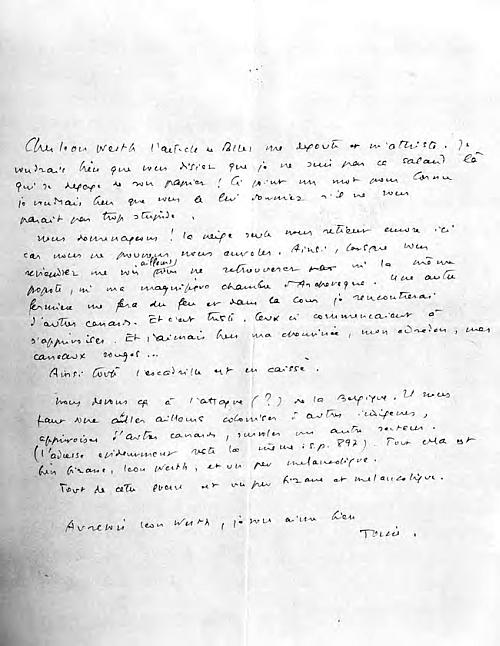 Cher Leon Werth l'article de me degoute et m'attriste. Je
voudrais bien que vous disiez que je ne suis pas ce salaud là
qui se degage de son papier ! Ci joint un mot pour
je voudrais bien que vous le lui donniez s'il ne vous
parait pas trop stupide.
Nous demenageons ! la neige seule nous retient encore ici
car nous ne pouvons nous envoler. Ainsi, lorsque vous
reviendrez me voir ailleurs vous ne retrouverez ni la même
popote, ni ma magnifique chambre d' Une autre
fermière me fera du feu et dans la cour je rencontrerai
d'autres canards. Et c'est triste. Ceux ci commencaient à
s'apprivoiser. Et j'aimais bien ma cheminée, mon edredon, mes
carreaux rouges...
Ainsi toute l'escadrille est en caisse.
Nous devons ça à l'attaque (?) de la Belgique. Il nous
faut donc aller ailleurs coloniser d'autres indigenes,
apprivoiser d'autres canards, un autre secteur.
(l'adresse evidemment reste la même : s.p. 897). Tout cela est
bien bizarre, Leon Werth, et un peu melancolique.
Tout de cette guerre est un peu bizarre et melancolique.
Au revoir Leon Werth, je vous aime bien